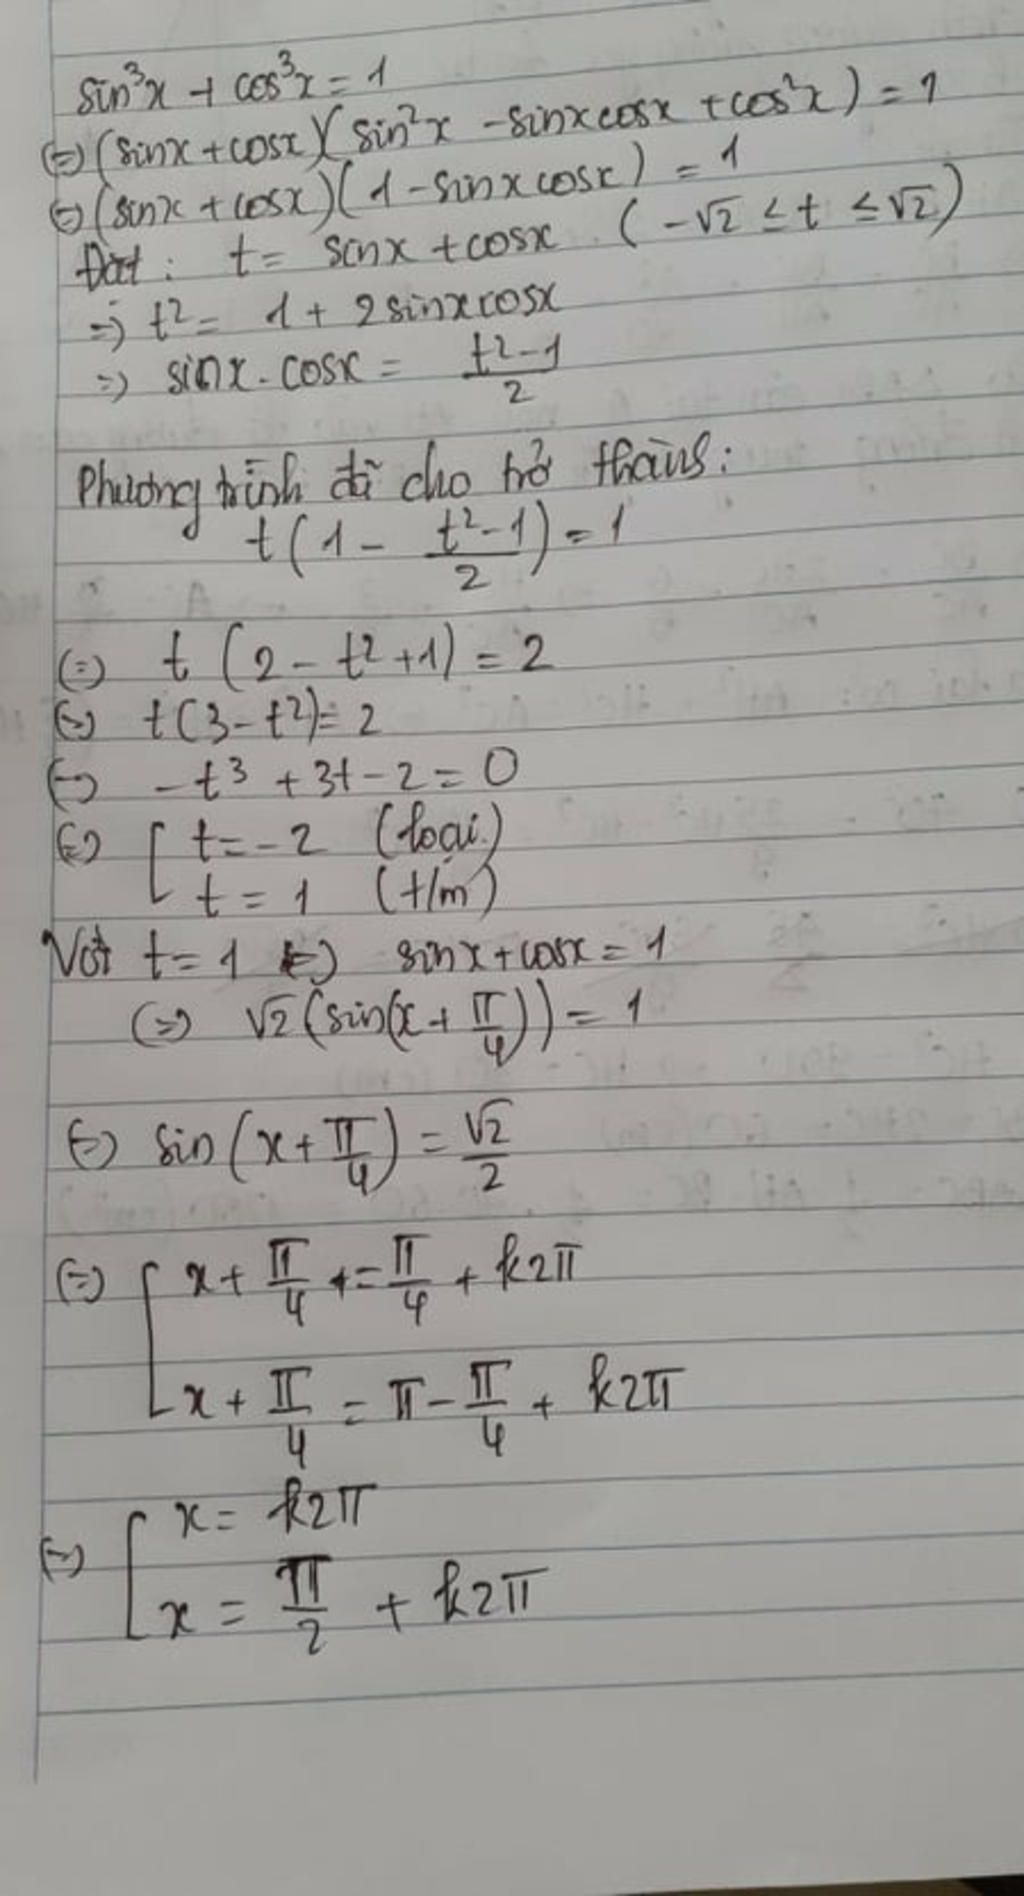 sin³x + cos³x = 1
(=) (sinx + cosx)(sin²x - sinxcosx + cos²x) = 1
(=) (sinx + cosx)(1 - sinxcosx) = 1
Đặt: t = sinx + cosx (-√2 ≤ t ≤ √2)
=) t² = 1 + 2sinxcosx
=) sinx . cosx = (t² - 1)/2
Phương trình đã cho trở thành:
t(1 - (t² - 1)/2) = 1
(=) t (2 - t² + 1) = 2
(=) t(3 - t²) = 2
(=) -t³ + 3t - 2 = 0
(=) [ t = -2 (loại)
t = 1 (t/m)
Với t = 1 (=) sinx + cosx = 1
(=) √2 (sin(x + π/4)) = 1
(=) sin (x + π/4) = √2/2
(=) [ x + π/4 = π/4 + k2π
x + π/4 = π - π/4 + k2π
(=) [ x = k2π
x = π/2 + k2π